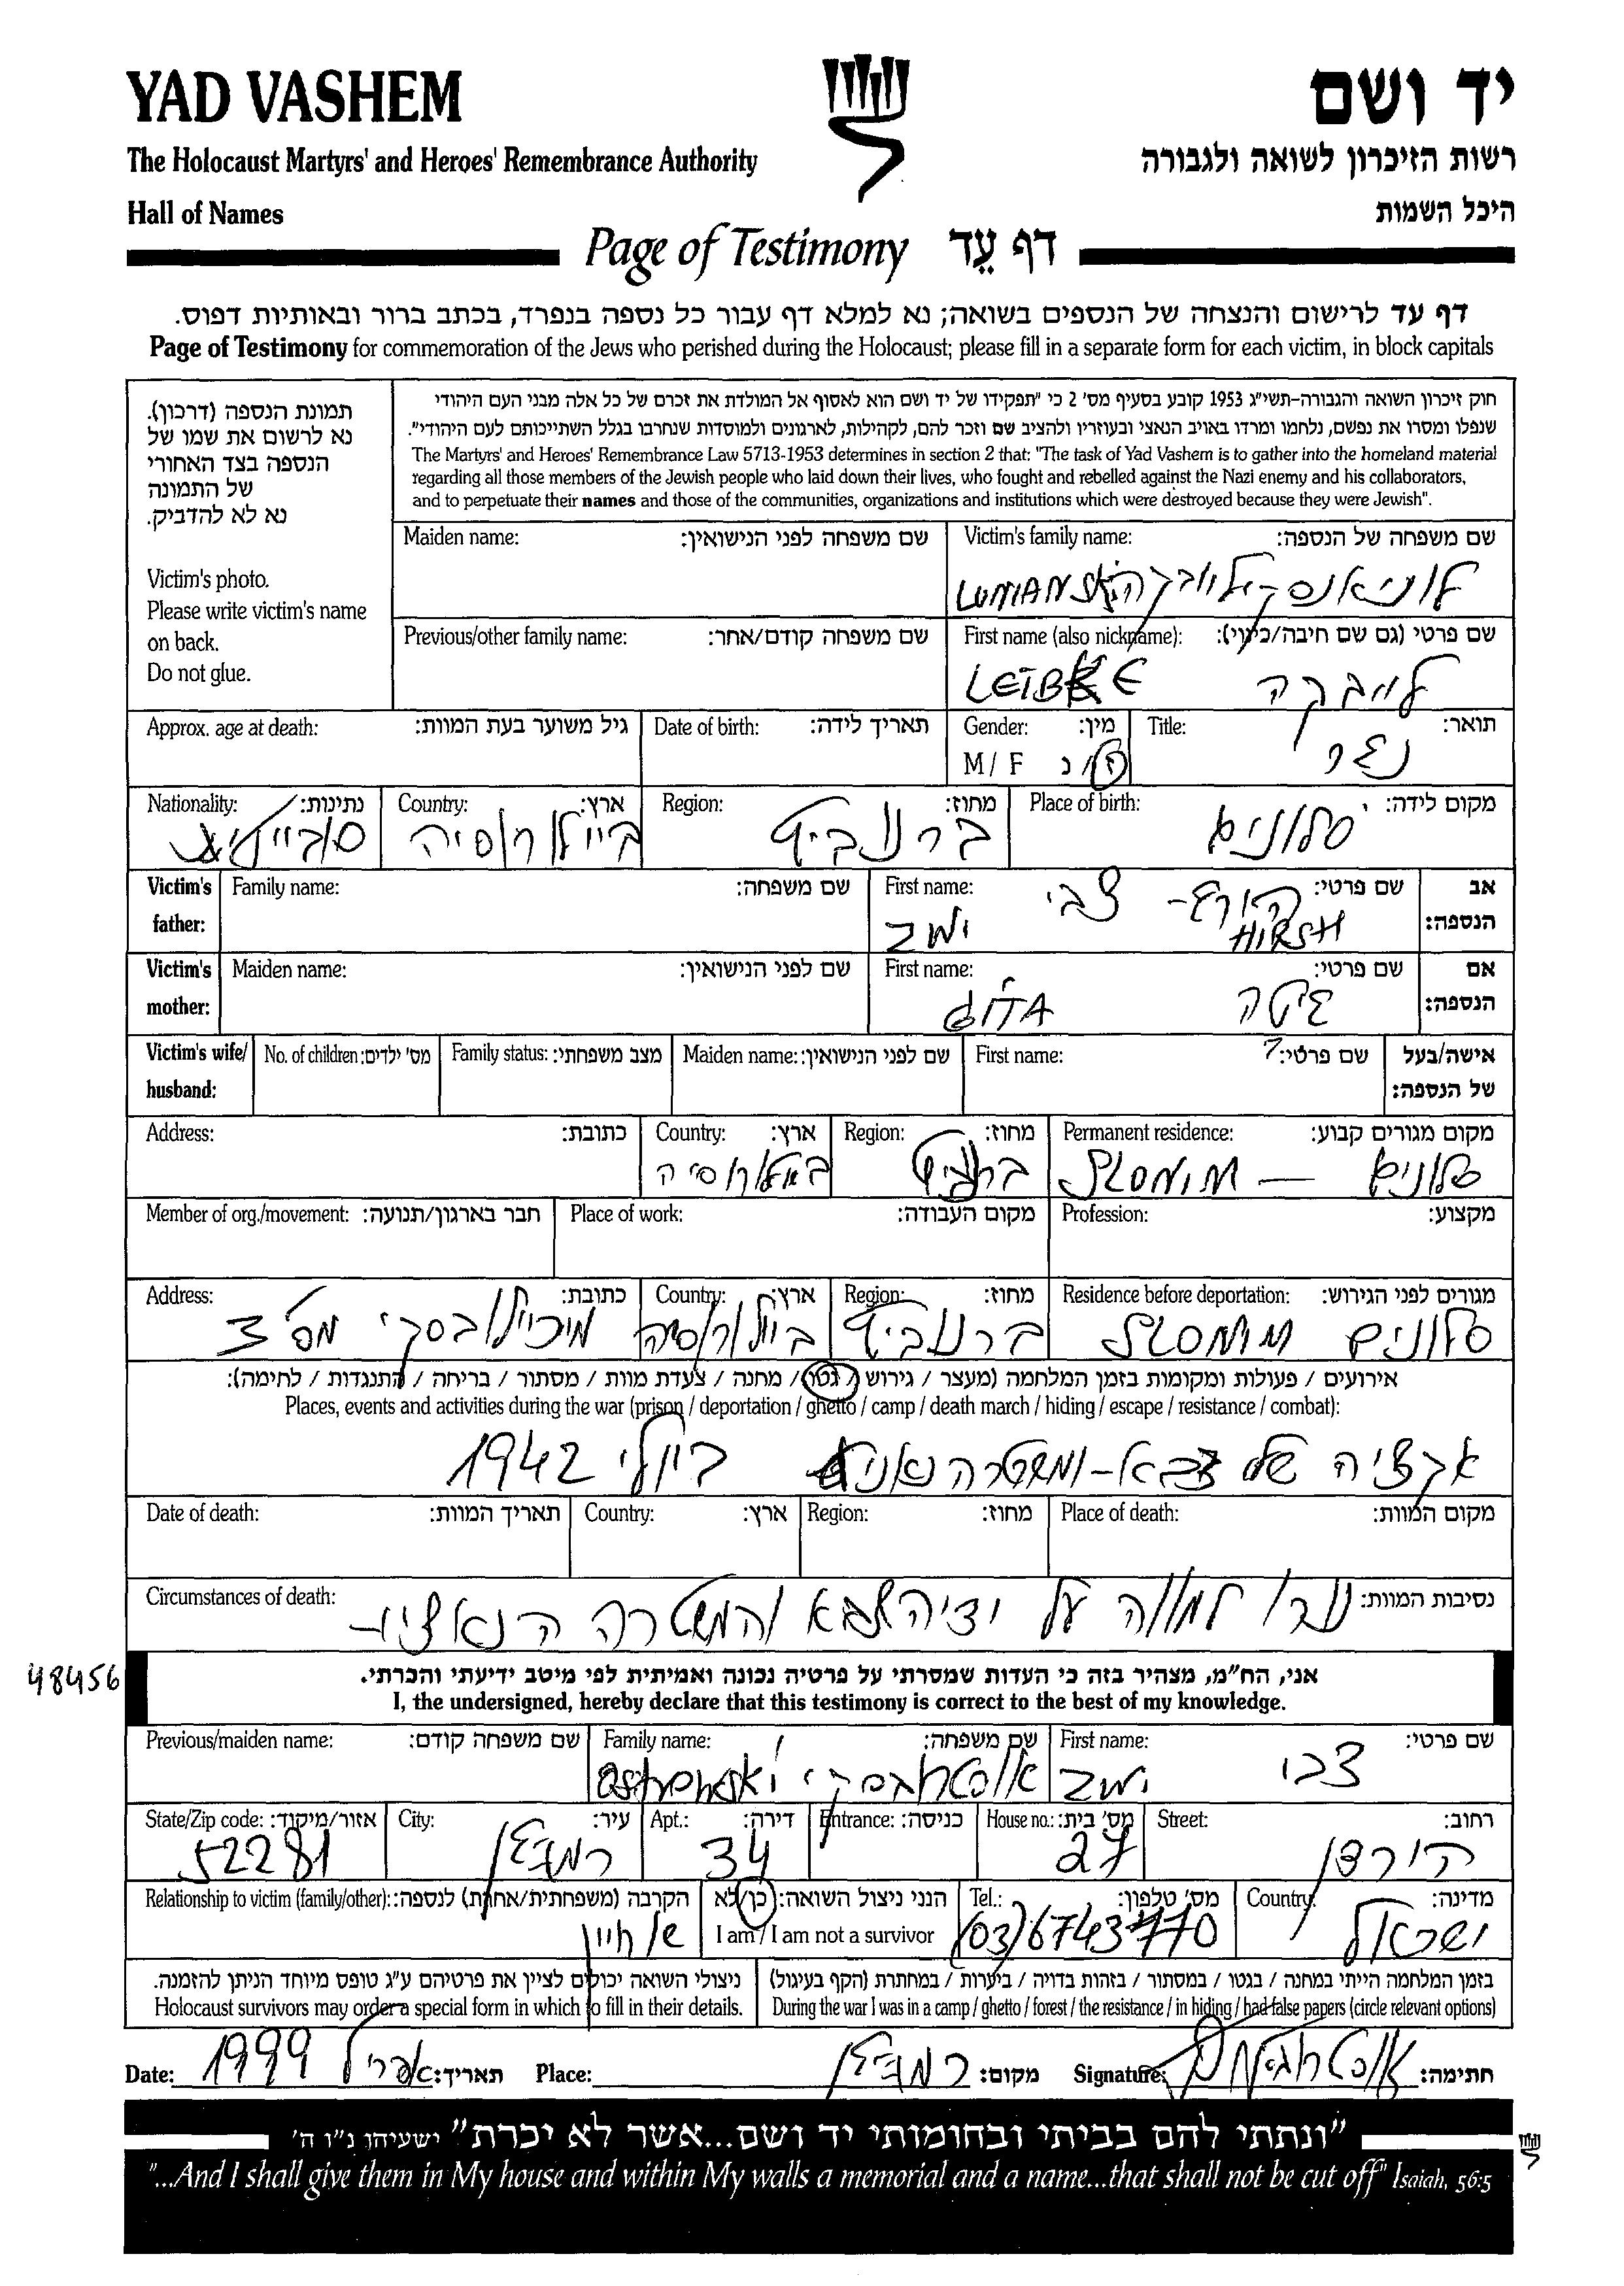 YAD VASHEM
יד ושם
The Holocaust Martyrs' and Heroes' Remembrance Authority
רשות הזיכרון לשואה ולגבורה
Hall of Names
היכל השמות
Page of Testimony דף עֵד
דף עד לרישום והנצחה של הנספים בשואה; נא למלא דף עבור כל נספה בנפרד, בכתב ברור ובאותיות דפוס.
Page of Testimony for commemoration of the Jews who perished during the Holocaust; please fill in a separate form for each victim, in block capitals
תמונת הנספה (דרכון).
נא לרשום את שמו של
הנספה בצד האחורי
של התמונה
נא לא להדביק.
Victim's photo.
Please write victim's name
on back.
Do not glue.
חוק זיכרון השואה והגבורה-תשי"ג 1953 קובע בסעיף מס' 2 כי "תפקידו של יד ושם הוא לאסוף אל המולדת את זכרם של כל אלה מבני העם היהודי
שנפלו ומסרו את נפשם, נלחמו ומרדו באויב הנאצי ובעוזריו ולהציב שם וזכר להם, לקהילות, לארגונים ולמוסדות שנחרבו בגלל השתייכותם לעם היהודי".
The Martyrs' and Heroes' Remembrance Law 5713-1953 determines in section 2 that: "The task of Yad Vashem is to gather into the homeland material
regarding all those members of the Jewish people who laid down their lives, who fought and rebelled against the Nazi enemy and his collaborators,
and to perpetuate their names and those of the communities, organizations and institutions which were destroyed because they were Jewish".
Maiden name: שם משפחה לפני הנישואין:
Victim's family name: שם משפחה של הנספה:
Previous/other family name: שם משפחה קודם/אחר:
First name (also nickname): שם פרטי (גם שם חיבה/כינוי):
LEIBKE לייבקה
Approx. age at death: גיל משוער בעת המוות:
Date of birth: תאריך לידה:
Gender: מין:
M / F ז/נ
Title: תואר:
נער
Nationality: נתינות:
Country: ארץ:
ביילורוסיה
Region: מחוז:
ברנוביץ
Place of birth: מקום לידה:
סלונים
Victim's father: אב הנספה:
Family name: שם משפחה:
First name: שם פרטי:
הירש - צבי
HIRSH
Victim's mother: אם הנספה:
Maiden name: שם לפני הנישואין:
First name: שם פרטי:
GITA גיטה
Victim's wife/husband: אישה/בעל של הנספה:
No. of children: מס' ילדים:
Family status: מצב משפחתי:
Maiden name: שם לפני הנישואין:
First name: שם פרטי: ?
Address: כתובת:
Country: ארץ:
Region: מחוז:
Permanent residence: מקום מגורים קבוע:
סלונים — SLONIM
Member of org./movement: חבר בארגון/תנועה:
Place of work: מקום העבודה:
Profession: מקצוע:
Address: כתובת:
מס' 3
Country: ארץ:
ביילורוסיה
Region: מחוז:
ברנוביץ
Residence before deportation: מגורים לפני הגירוש:
סלונים SLONIM
אירועים / פעולות ומקומות בזמן המלחמה (מעצר / גירוש / גטו / מחנה / צעדת מוות / מסתור / בריחה / התנגדות / לחימה):
Places, events and activities during the war (prison / deportation / ghetto / camp / death march / hiding / escape / resistance / combat):
אקציה של צבא - ומשטרה ביולי 1942
Date of death: תאריך המוות:
Country: ארץ:
Region: מחוז:
Place of death: מקום המוות:
Circumstances of death: נסיבות המוות:
על ידי הצבא והמשטרה הנאצי
48456
אני, הח"מ, מצהיר בזה כי העדות שמסרתי על פרטיה נכונה ואמיתית לפי מיטב ידיעתי והכרתי.
I, the undersigned, hereby declare that this testimony is correct to the best of my knowledge.
Previous/maiden name: שם משפחה קודם:
Family name: שם משפחה:
אוסטרובסקי Ostrowski
First name: שם פרטי:
צבי
State/Zip code: אזור/מיקוד:
52281
City: עיר:
רמת גן
Apt.: דירה:
34
Entrance: כניסה:
House no.: מס' בית:
27
Street: רחוב:
הירדן
Relationship to victim (family/other): הקרבה (משפחתית/אחרת) לנספה:
הנני ניצול השואה: כן/לא
I am / I am not a survivor
Tel.: מס' טלפון:
(03)6743770
Country: מדינה:
ישראל
ניצולי השואה יכולים לציין את פרטיהם ע"ג טופס מיוחד הניתן להזמנה.
Holocaust survivors may order a special form in which to fill in their details.
בזמן המלחמה הייתי במחנה / בגטו / במסתור / בזהות בדויה / ביערות / במחתרת (הקף בעיגול)
During the war I was in a camp / ghetto / forest / the resistance / in hiding / had false papers (circle relevant options)
Date: 1999 אפריל תאריך: Place: רמת גן מקום: Signature: חתימה:
"ונתתי להם בביתי ובחומותי יד ושם...אשר לא יכרת" ישעיהו נ"ו ה'
"...And I shall give them in My house and within My walls a memorial and a name...that shall not be cut off" Isaiah, 56:5